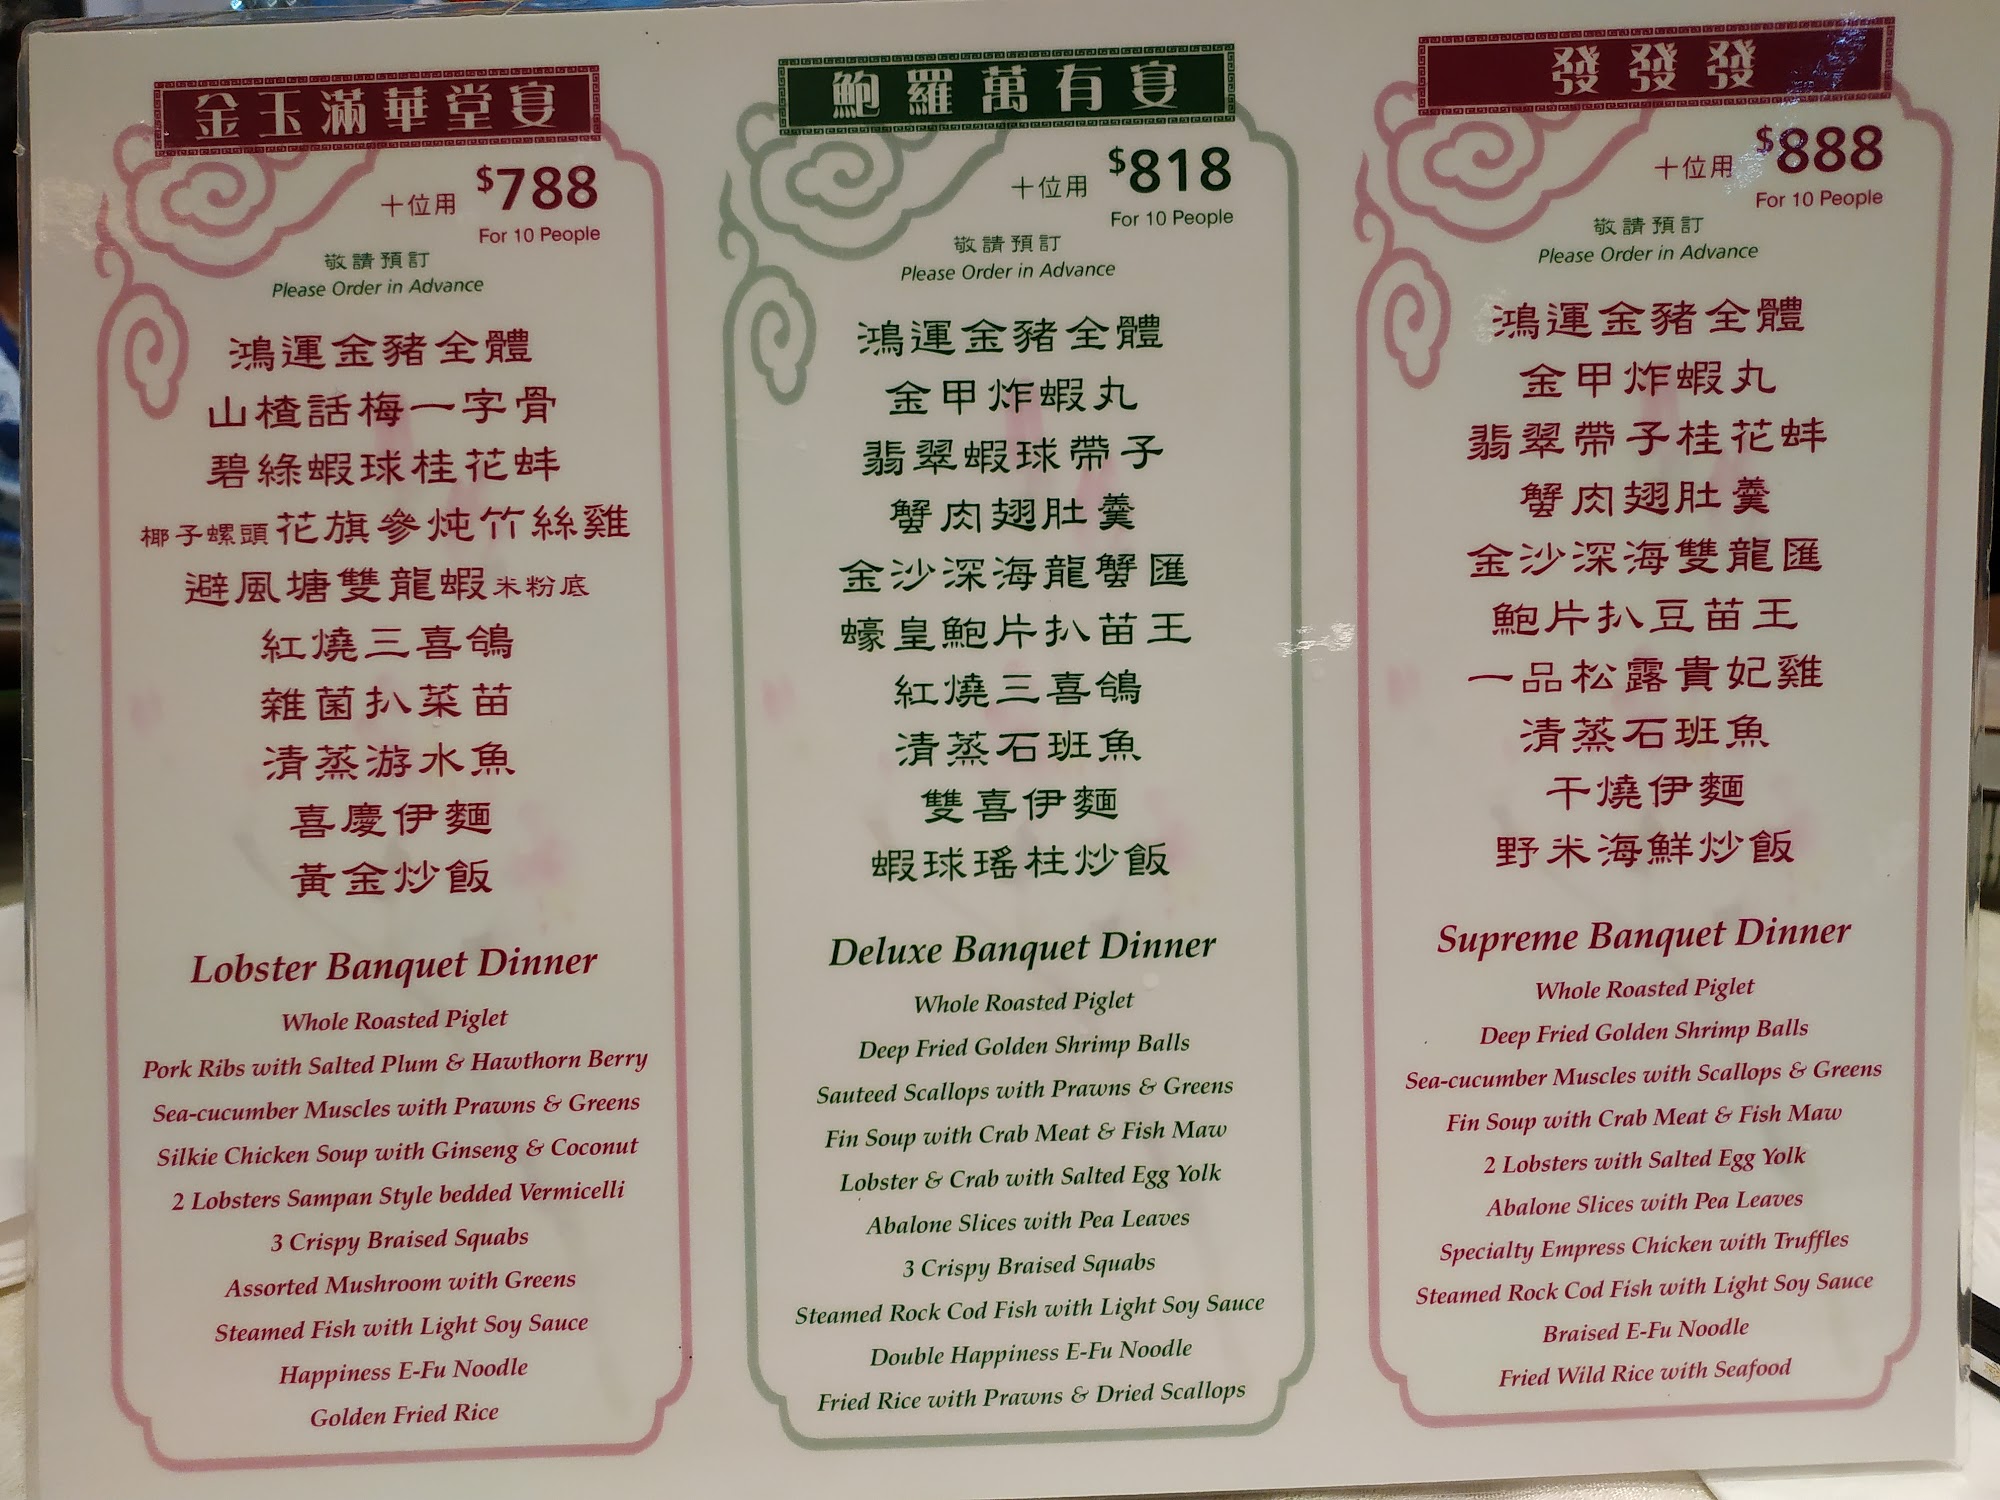 金玉滿華堂宴
十位用 $788
For 10 People
敬請預訂
Please Order in Advance
鴻運金豬全體
山楂話梅一字骨
碧綠蝦球桂花蚌
椰子螺頭花旗參炖竹絲雞
避風塘雙龍蝦米粉底
紅燒三喜鴿
雜菌扒菜苗
清蒸游水魚
喜慶伊麵
黃金炒飯
Lobster Banquet Dinner
Whole Roasted Piglet
Pork Ribs with Salted Plum & Hawthorn Berry
Sea-cucumber Muscles with Prawns & Greens
Silkie Chicken Soup with Ginseng & Coconut
2 Lobsters Sampan Style bedded Vermicelli
3 Crispy Braised Squabs
Assorted Mushroom with Greens
Steamed Fish with Light Soy Sauce
Happiness E-Fu Noodle
Golden Fried Rice
鮑羅萬有宴
十位用 $818
For 10 People
敬請預訂
Please Order in Advance
鴻運金豬全體
金甲炸蝦丸
翡翠蝦球帶子
蟹肉翅肚羹
金沙深海龍蟹匯
蠔皇鮑片扒苗王
紅燒三喜鴿
清蒸石班魚
雙喜伊麵
蝦球瑤柱炒飯
Deluxe Banquet Dinner
Whole Roasted Piglet
Deep Fried Golden Shrimp Balls
Sauteed Scallops with Prawns & Greens
Fin Soup with Crab Meat & Fish Maw
Lobster & Crab with Salted Egg Yolk
Abalone Slices with Pea Leaves
3 Crispy Braised Squabs
Steamed Rock Cod Fish with Light Soy Sauce
Double Happiness E-Fu Noodle
Fried Rice with Prawns & Dried Scallops
發發發
十位用 $888
For 10 People
敬請預訂
Please Order in Advance
鴻運金豬全體
金甲炸蝦丸
翡翠帶子桂花蚌
蟹肉翅肚羹
金沙深海雙龍匯
鮑片扒豆苗王
一品松露貴妃雞
清蒸石班魚
干燒伊麵
野米海鮮炒飯
Supreme Banquet Dinner
Whole Roasted Piglet
Deep Fried Golden Shrimp Balls
Sea-cucumber Muscles with Scallops & Greens
Fin Soup with Crab Meat & Fish Maw
2 Lobsters with Salted Egg Yolk
Abalone Slices with Pea Leaves
Specialty Empress Chicken with Truffles
Steamed Rock Cod Fish with Light Soy Sauce
Braised E-Fu Noodle
Fried Wild Rice with Seafood